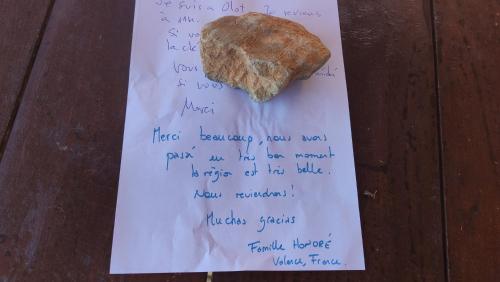 Je suis a Olot. Je reviens
à 11H.
Si vo
la clé
Vous
si vous
Merci
Merci beaucoup, nous avons
passé un très bon moment
la région est très belle.
Nous reviendrons!
Muchas gracias
Famille HONORÉ
Valence, France.